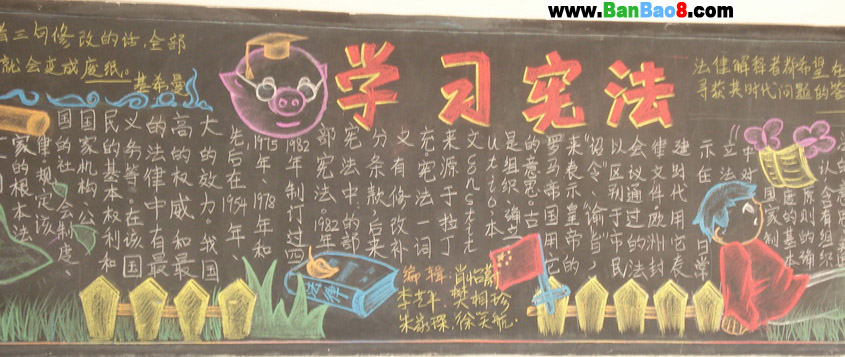 www.BanBao8.com
三句修改的话,全部
就会变成废纸。
基希曼
学习宪法
法律解释者都希望在
寻获其时代问题的答
家的根本法
律,规定该
国的社会制度、
国家机构、公
民的基本权利和
义务等。在该国
的法律中有最
高的权威和最
大的效力。我国
先后在1954年、
1975年、1978年和
1982年制订过四
部宪法。1982年
宪法中的部
分条款,后来
又有修改补
充宪法一词
来源于拉丁
是组织、确立
的意思。古
罗马帝国用它
来表示皇帝的
“诏令”“谕旨”
以区别于市民
会议通过的法
律文件欧洲封
建时代用它表
示在日常
立法中对
国家制
度的基本
原则的确
含有组织
法律
编辑:肖怡蔚
李芝平.樊相珍